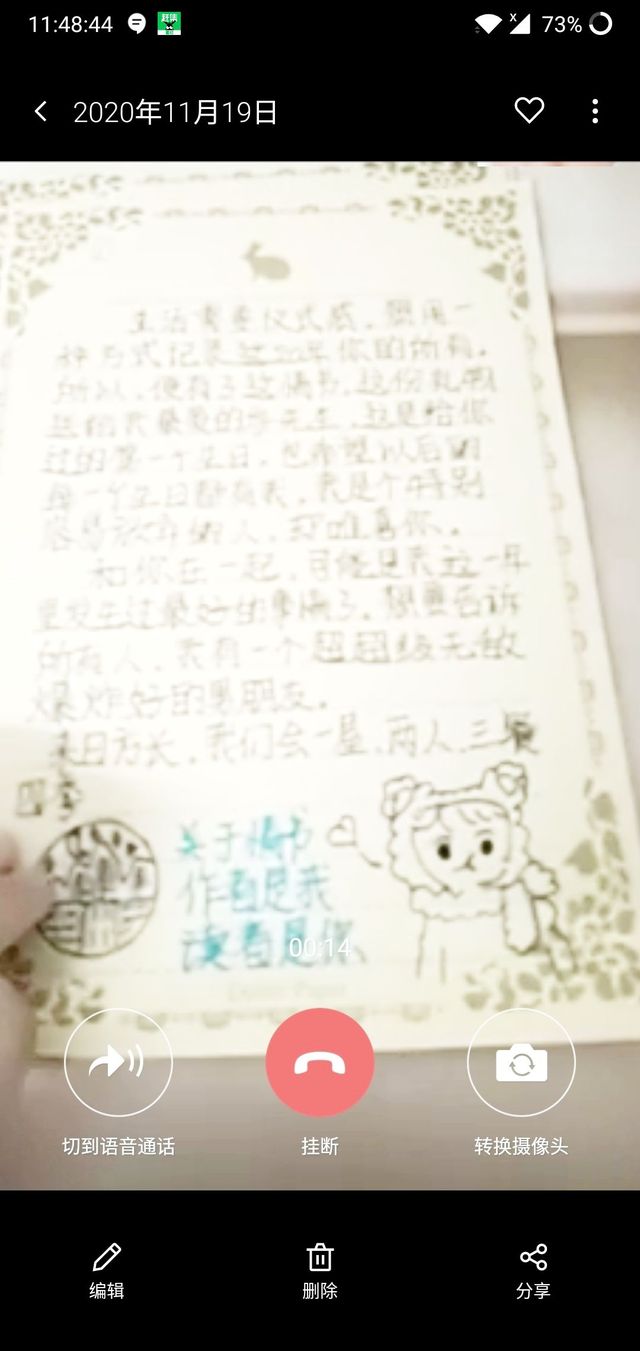 11:48:44
73%
2020年11月19日
生活需要仪式感,想用一
种方式记录这一年你的所有。
所以,便有了这情书,这份礼物
送给我最爱的先生,这是给你
过的第一个生日,也希望以后的
每一个生日都有我,我是个特别
容易放弃的人,却唯喜你。
和你在一起,可能是我这一年
里发生过最好的事情了。想要告诉
所有人,我有一个超超级无敌
爆炸好的男朋友。
来日方长,我们会一屋,两人,三餐
四季
关于情书
作者是我
读者是你
00:14
切到语音通话
挂断
转换摄像头
编辑
删除
分享